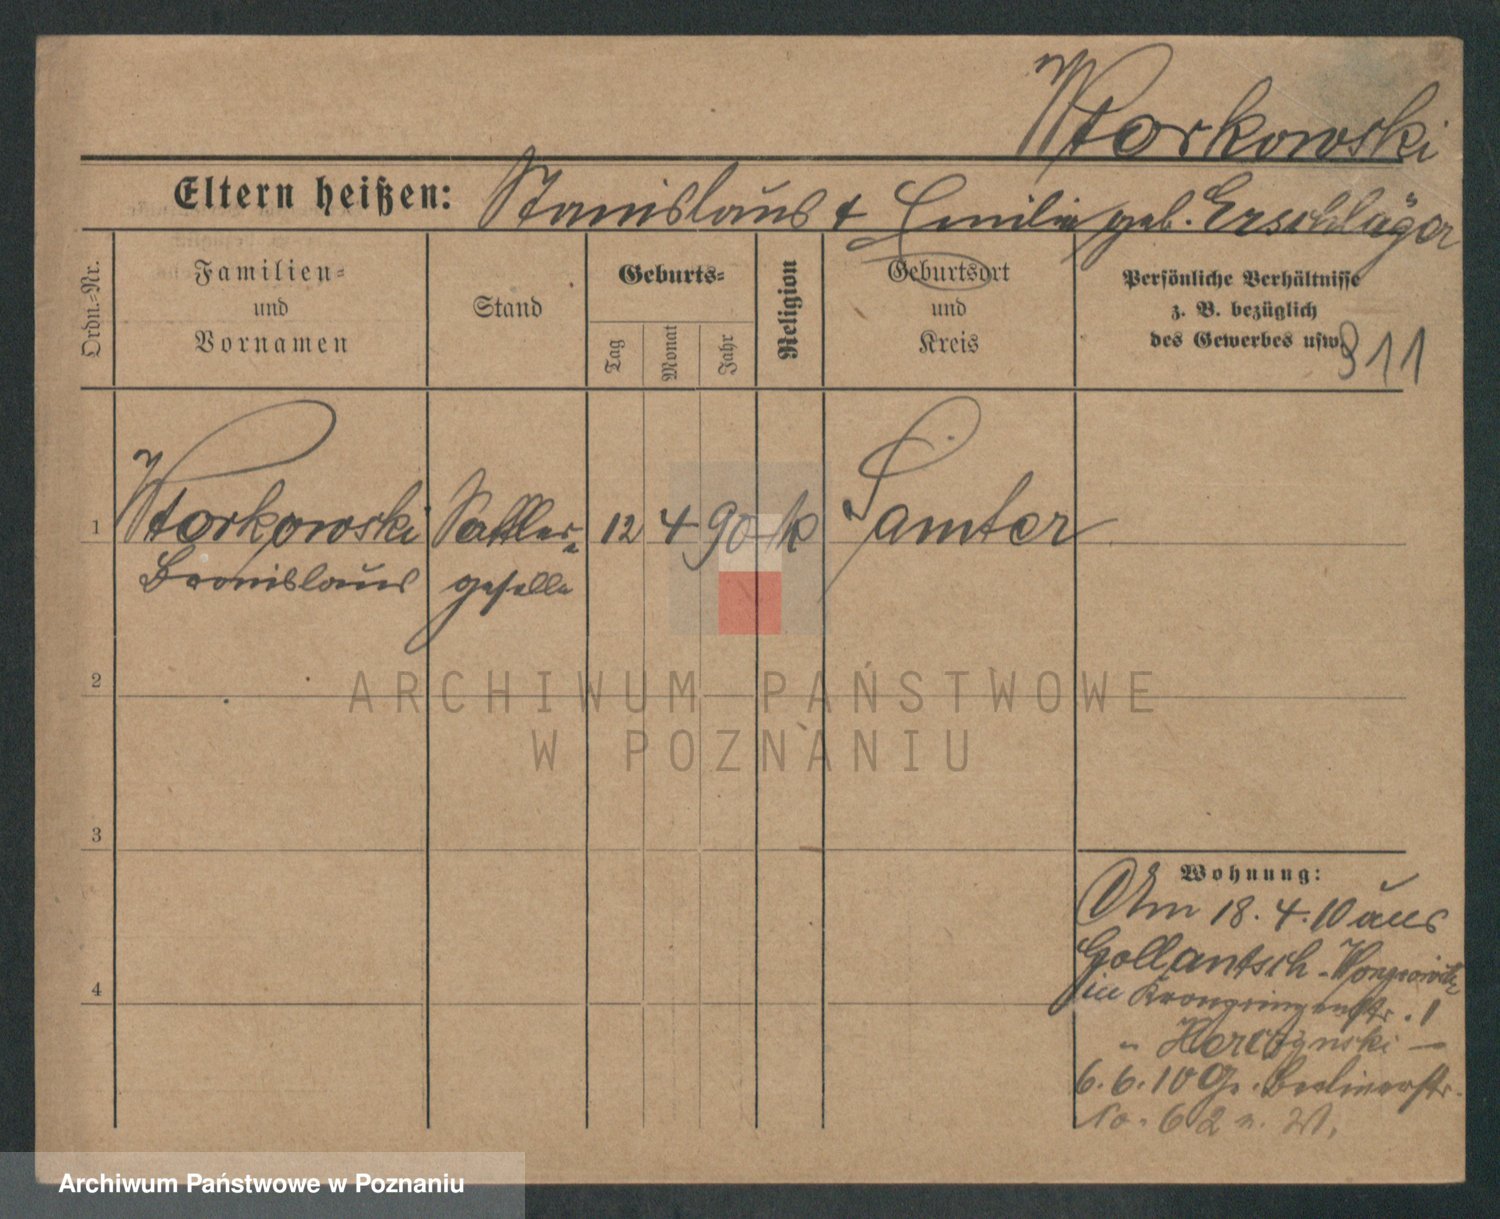 Wtorkowski
Eltern heißen: Stanislaus & Emilie geb. Erschläger
Ordn.=Nr.
Familien=
und
Vornamen
Stand
Geburts=
Tag
Monat
Jahr
Religion
Geburtsort
und
Kreis
Persönliche Verhältnisse
z. B. bezüglich
des Gewerbes usw.
311
1 Wtorkowski Sattler- 12 4 90 k Samter
Bronislaus geselle
2
ARCHIWUM PAŃSTWOWE
W POZNANIU
3
Wohnung:
Am 18. 4. 10 aus
Gollantsch - Wongrowitz
4
in Kronprinzenstr. 1
6. 6. 10 Berlinerstr.
No. 62
Archiwum Państwowe w Poznaniu